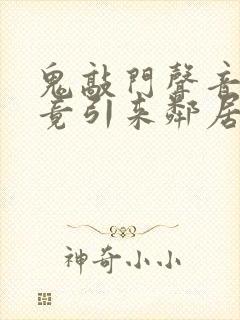 鬼敲門聲音
竟引來鄰居
神奇小小